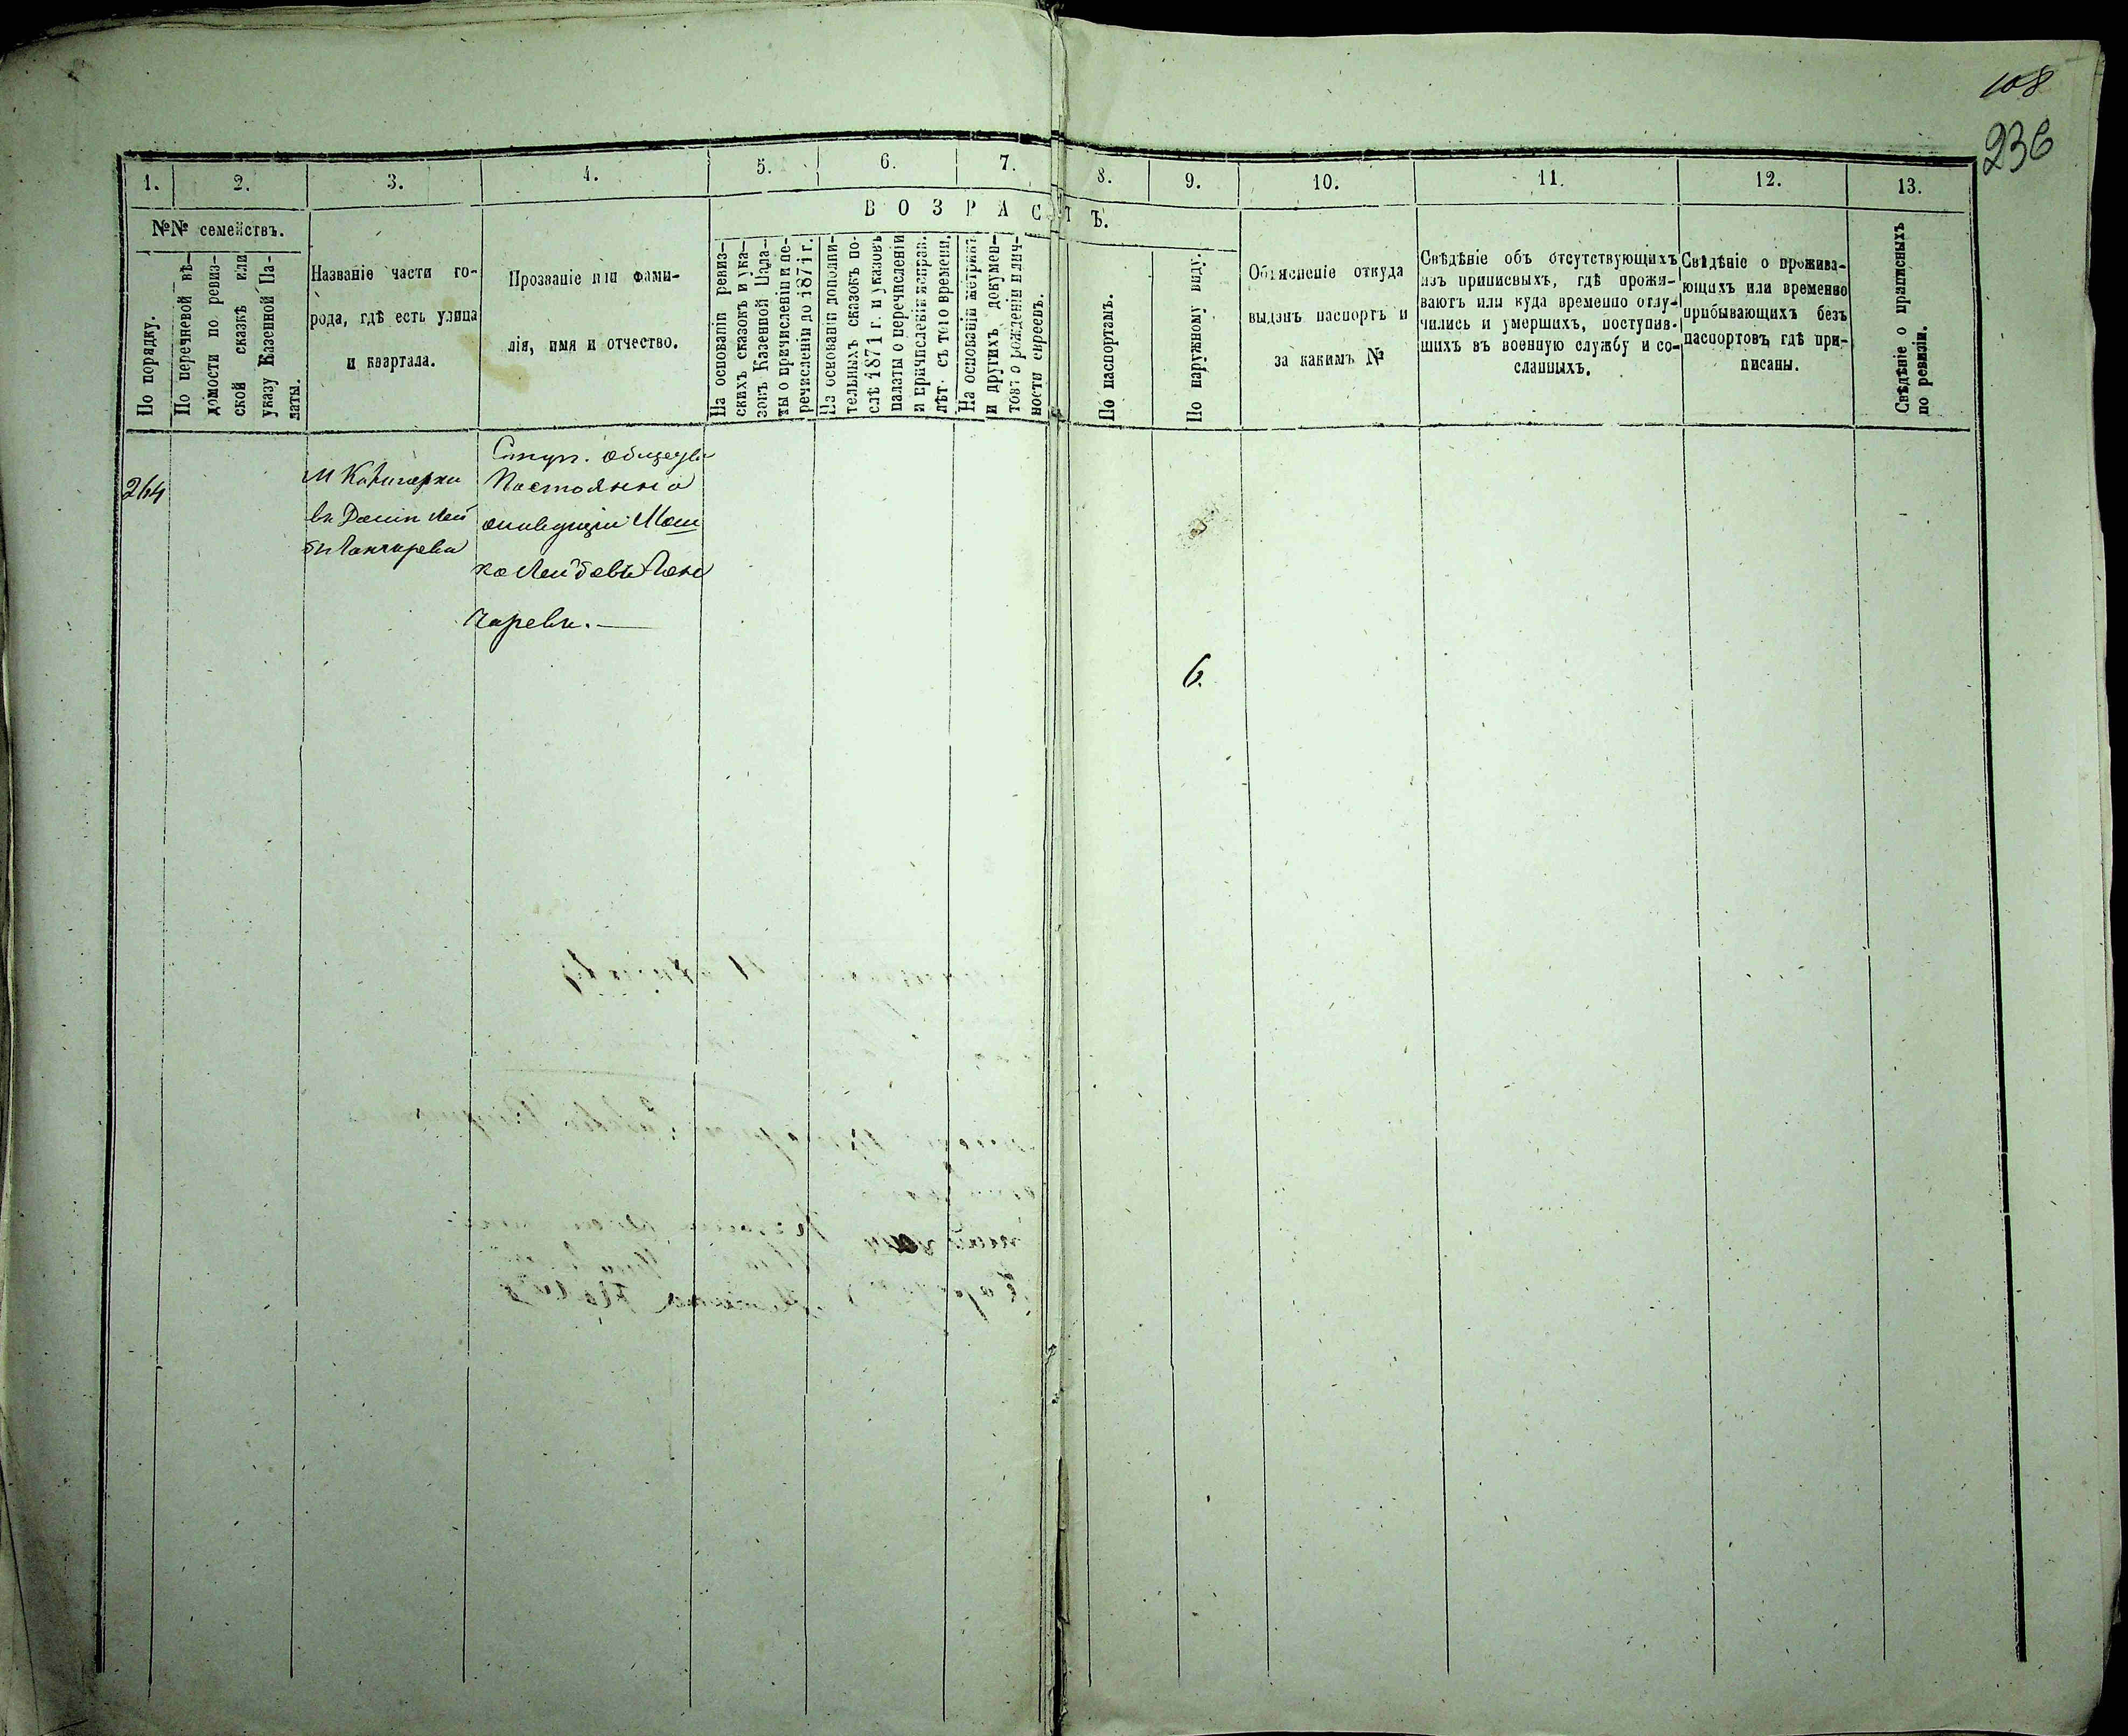 108
236
1. 2. 3. 4. 5. 6. 7. 8. 9. 10. 11. 12. 13.
№№ семействъ.
По порядку.
По перечневой вѣ-
домости по ревиз-
ской сказкѣ или
указу Казенной Па-
латы.
Названіе части го-
рода, гдѣ есть улица
и квартала.
Прозваніе или фами-
лія, имя и отчество.
ВОЗРАСТЪ.
На основаніи ревиз-
скихъ сказокъ и ука-
зовъ Казенной Пала-
ты о причисленіи и пе-
речисленіи до 1871 г.
На основаніи дополни-
тельныхъ сказокъ по-
слѣ 1871 г. и указовъ
палаты о перечисленіи
и причисленіи
лѣт. съ того времени.
На основаніи метрикъ
и другихъ докумен-
товъ о рожденіи и лич-
ности евреевъ.
По паспортамъ.
По наружному виду.
Объясненіе откуда
выданъ паспортъ и
за какимъ №
Свѣдѣніе объ отсутствующихъ
изъ приписныхъ, гдѣ прожи-
ваютъ или куда временно отлу-
чились и умершихъ, поступив-
шихъ въ военную службу и со-
сланныхъ.
Свѣдѣніе о прожива-
ющихъ или временно
прибывающихъ безъ
паспортовъ, гдѣ при-
писаны.
Свѣдѣніе о приписныхъ
по ревизіи.
264
Постоянно
живущій Мош
ко Лейбовъ
чаревъ.
6.